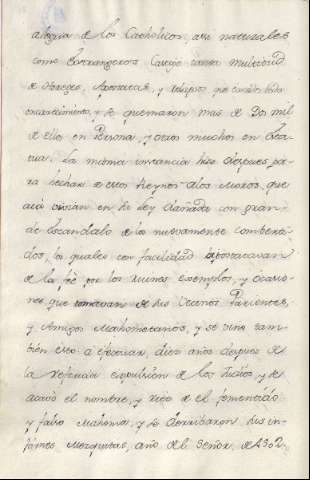 alegria de los Catholicos, assi naturales
como Extrangeros Cayeso tanta multitud
de Hereges, Apostatas, y relapsos que
encarecimiento, y se quemaron mas de Dos mil
de ellos en Persona, y otros muchos en Esta-
tua. La misma instancia hizo despues pa-
ra hechar de estos Reynos a los Moros, que
aia vivian en su Ley dañada con gran-
de Escandalo de los nuevamente comberti-
dos, los quales con facilidad apostatavan
de la feè por los ruines exemplos, y ocasio-
nes, que tomavan de sus Vecinos Parientes,
y Amigos Mahometanos, y se vino tam-
bien esto a efectuar, diez años despues de
la referida expulsion de los Judios, y se
acavò el nombre, y vejo de el fementido
y falso Mahoma, y se derribaron sus in-
fames Mezquitas, año de el Señor, de 1502.